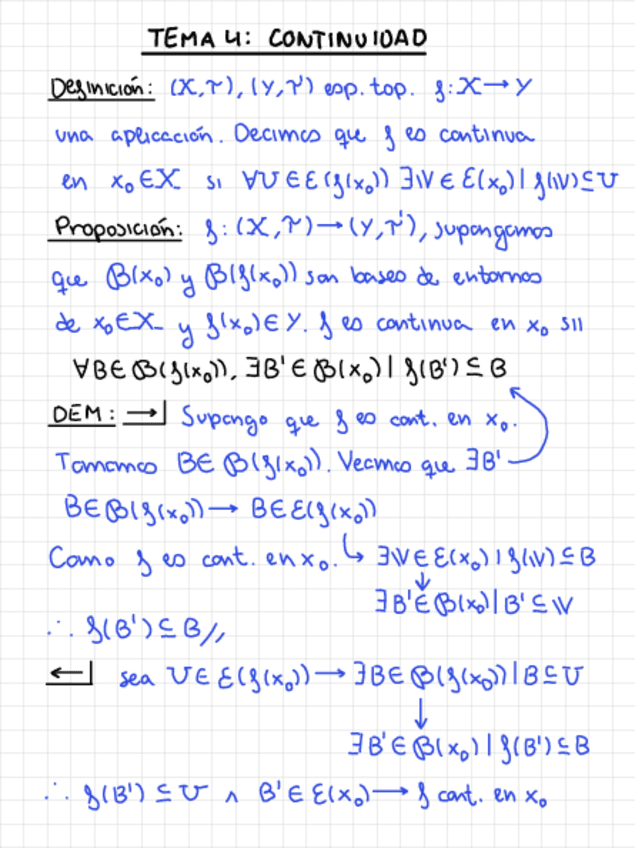 TEMA 4: CONTINUIDAD
Definición: (X,τ), (Y,τ') esp. top. f: X → Y
una aplicación. Decimos que f es continua
en x₀ ∈ X si ∀U ∈ ℰ(f(x₀)) ∃V ∈ ℰ(x₀) | f(V) ⊆ U
Proposición: f: (X,τ) → (Y,τ'), supongamos
que 𝓑(x₀) y 𝓑(f(x₀)) son bases de entornos
de x₀ ∈ X y f(x₀) ∈ Y. f es continua en x₀ sii
∀B ∈ 𝓑(f(x₀)), ∃B' ∈ 𝓑(x₀) | f(B') ⊆ B
DEM: → Supongo que f es cont. en x₀.
Tomamos B ∈ 𝓑(f(x₀)). Veamos que ∃B'
B ∈ 𝓑(f(x₀)) → B ∈ ℰ(f(x₀))
Como f es cont. en x₀. ↳ ∃V ∈ ℰ(x₀) | f(V) ⊆ B
↓
∃B' ∈ 𝓑(x₀) | B' ⊆ V
∴ f(B') ⊆ B //
← sea U ∈ ℰ(f(x₀)) → ∃B ∈ 𝓑(f(x₀)) | B ⊆ U
↓
∃B' ∈ 𝓑(x₀) | f(B') ⊆ B
∴ f(B') ⊆ U ∧ B' ∈ ℰ(x₀) → f cont. en x₀